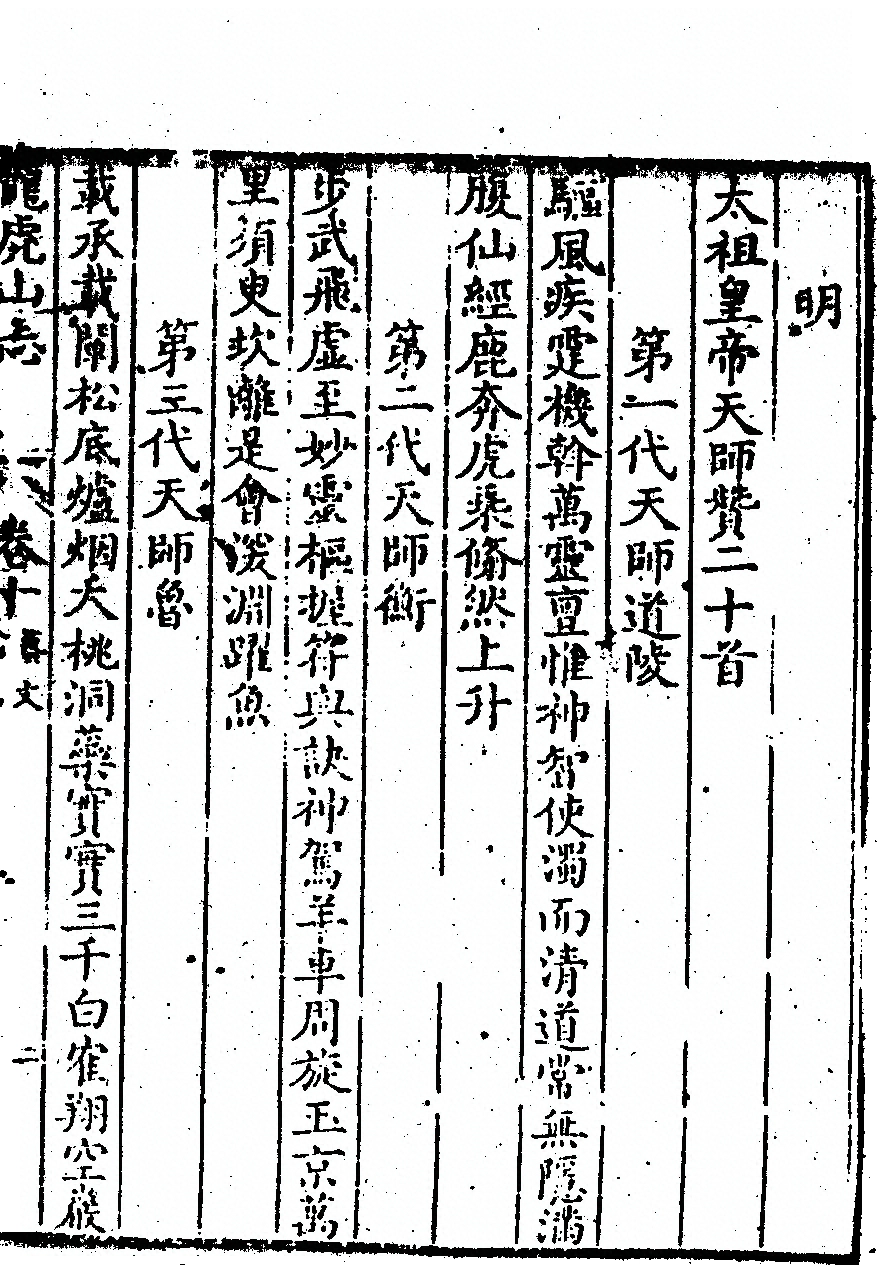 明
太祖皇帝天師贊二十首
第一代天師道陵
驅風疾霆機斡萬靈亶惟神智使濁而清道常無隱滿
腹仙經鹿奔虎乘翛然上升
第二代天師衡
步武飛虛至妙靈樞握符與訣神駕羊車周旋玉京萬
里須臾坎離是會潑淵躍魚
第三代天師魯
載承載闡松底爐烟夭桃洞藥實實三千白隺翔空巖
龍虎山志 卷十 藝文 二